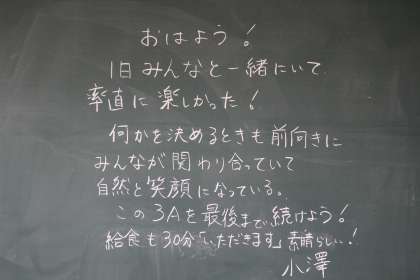 おはよう!
1日みんなと一緒にいて
率直に楽しかった!
何かを決めるときも前向きに
みんなが関わり合っていて
自然と笑顔になっている。
この3Aを最後まで続けよう!
給食も30分「いただきます」素晴らしい!
小澤